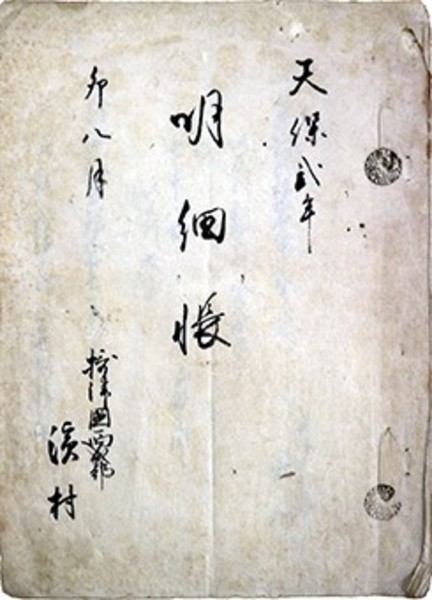 天保弐年
明細帳
卯八月
摂津國
濱村